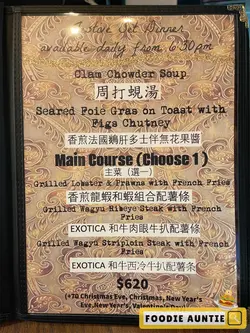 Set Dinner
available daily from 6:30pm
Clam Chowder Soup
周打蜆湯
Seared Foie Gras on Toast with
Figs Chutney
香煎法國鵝肝多士伴無花果醬
Main Course (Choose 1)
主菜（選一）
Grilled Lobster & Prawns with French Fries
香煎龍蝦和蝦組合配薯條
Grilled Wagyu Ribeye Steak with French
Fries
EXOTICA 和牛肉眼牛扒配薯條
Grilled Wagyu Striploin Steak with French
Fries
EXOTICA 和牛西冷牛扒配薯条
$620
(+70 Christmas Eve, Christmas, New Year's
Eve, New Year's, Valentine's
FOODIE AUNTIE